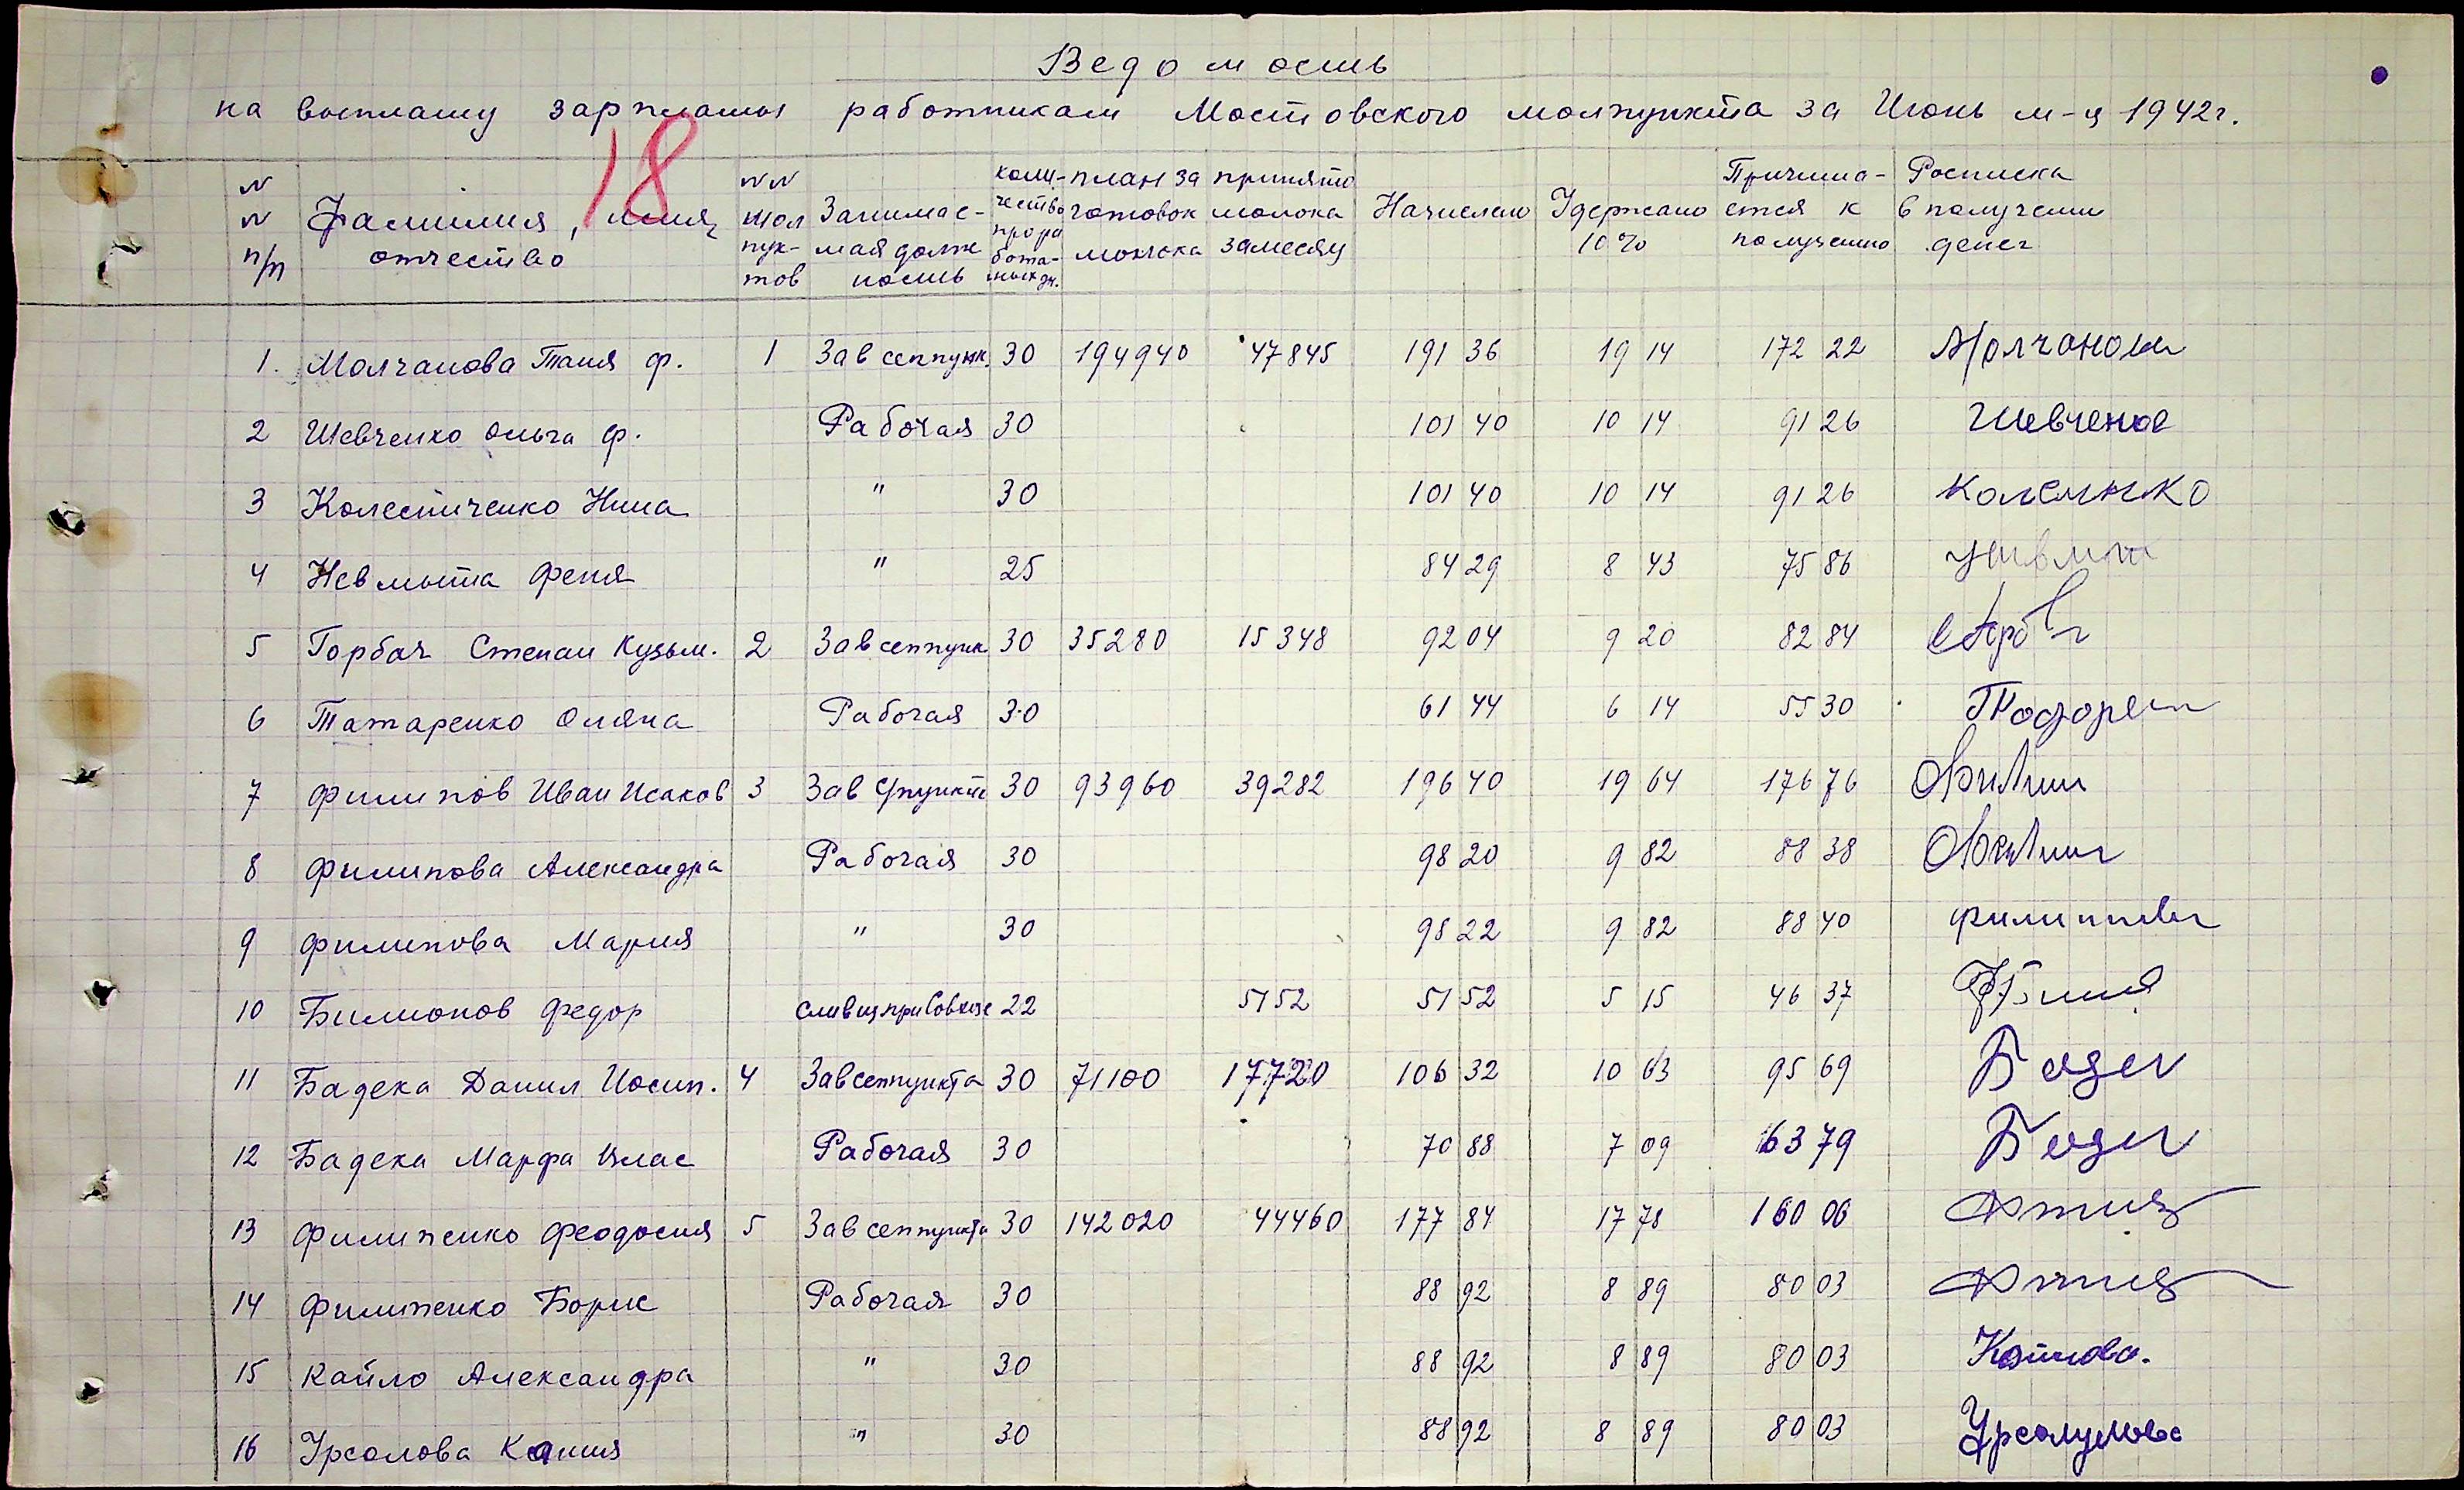 Ведомость
на выплату зарплаты работникам Мостовского молпункта за Июнь м-ц 1942г.
18
N N п/п | Фамилия, имя, отчество | NN мол пунк-тов | Занимае-мая долж ность | коли-чество прора бота-ных дн. | план за готовок молока | принято молока за месяц | Начислено | Удержано 10% | Причита-ется к получению | Росписка в получении денег
1. Молчанова Таня Ф. 1 Зав сеппунк. 30 194940 47845 191 36 19 14 172 22 Молчанова
2 Шевченко Ольга Ф. Рабочая 30 101 40 10 14 91 26 Шевченко
3 Колестиченко Нина " 30 101 40 10 14 91 26
4 Невмыта Феня " 25 84 29 8 43 75 86
5 Горбач Степан Кузьм. 2 Зав сеппунк 30 35280 15348 92 04 9 20 82 84
6 Татаренко Оляна Рабочая 30 61 44 6 14 55 30
7 Филипов Иван Исаков 3 Зав с/пункта 30 93960 39282 196 40 19 64 176 76
8 Филипова Александра Рабочая 30 98 20 9 82 88 38
9 Филипова Мария " 30 98 22 9 82 88 40 Филиппова
10 Билионов Федор 22 5152 51 52 5 15 46 37
11 Бадека Данил Иосип. 4 Зав сеппункта 30 71100 17720 106 32 10 63 95 69
12 Бадека Марфа Влас Рабочая 30 70 88 7 09 63 79
13 Филипенко Феодосия 5 Зав сеппункта 30 142020 44460 177 84 17 78 160 06
14 Филипенко Борис Рабочая 30 88 92 8 89 80 03
15 Кайло Александра " 30 88 92 8 89 80 03
16 Урсолова Камия " 30 88 92 8 89 80 03